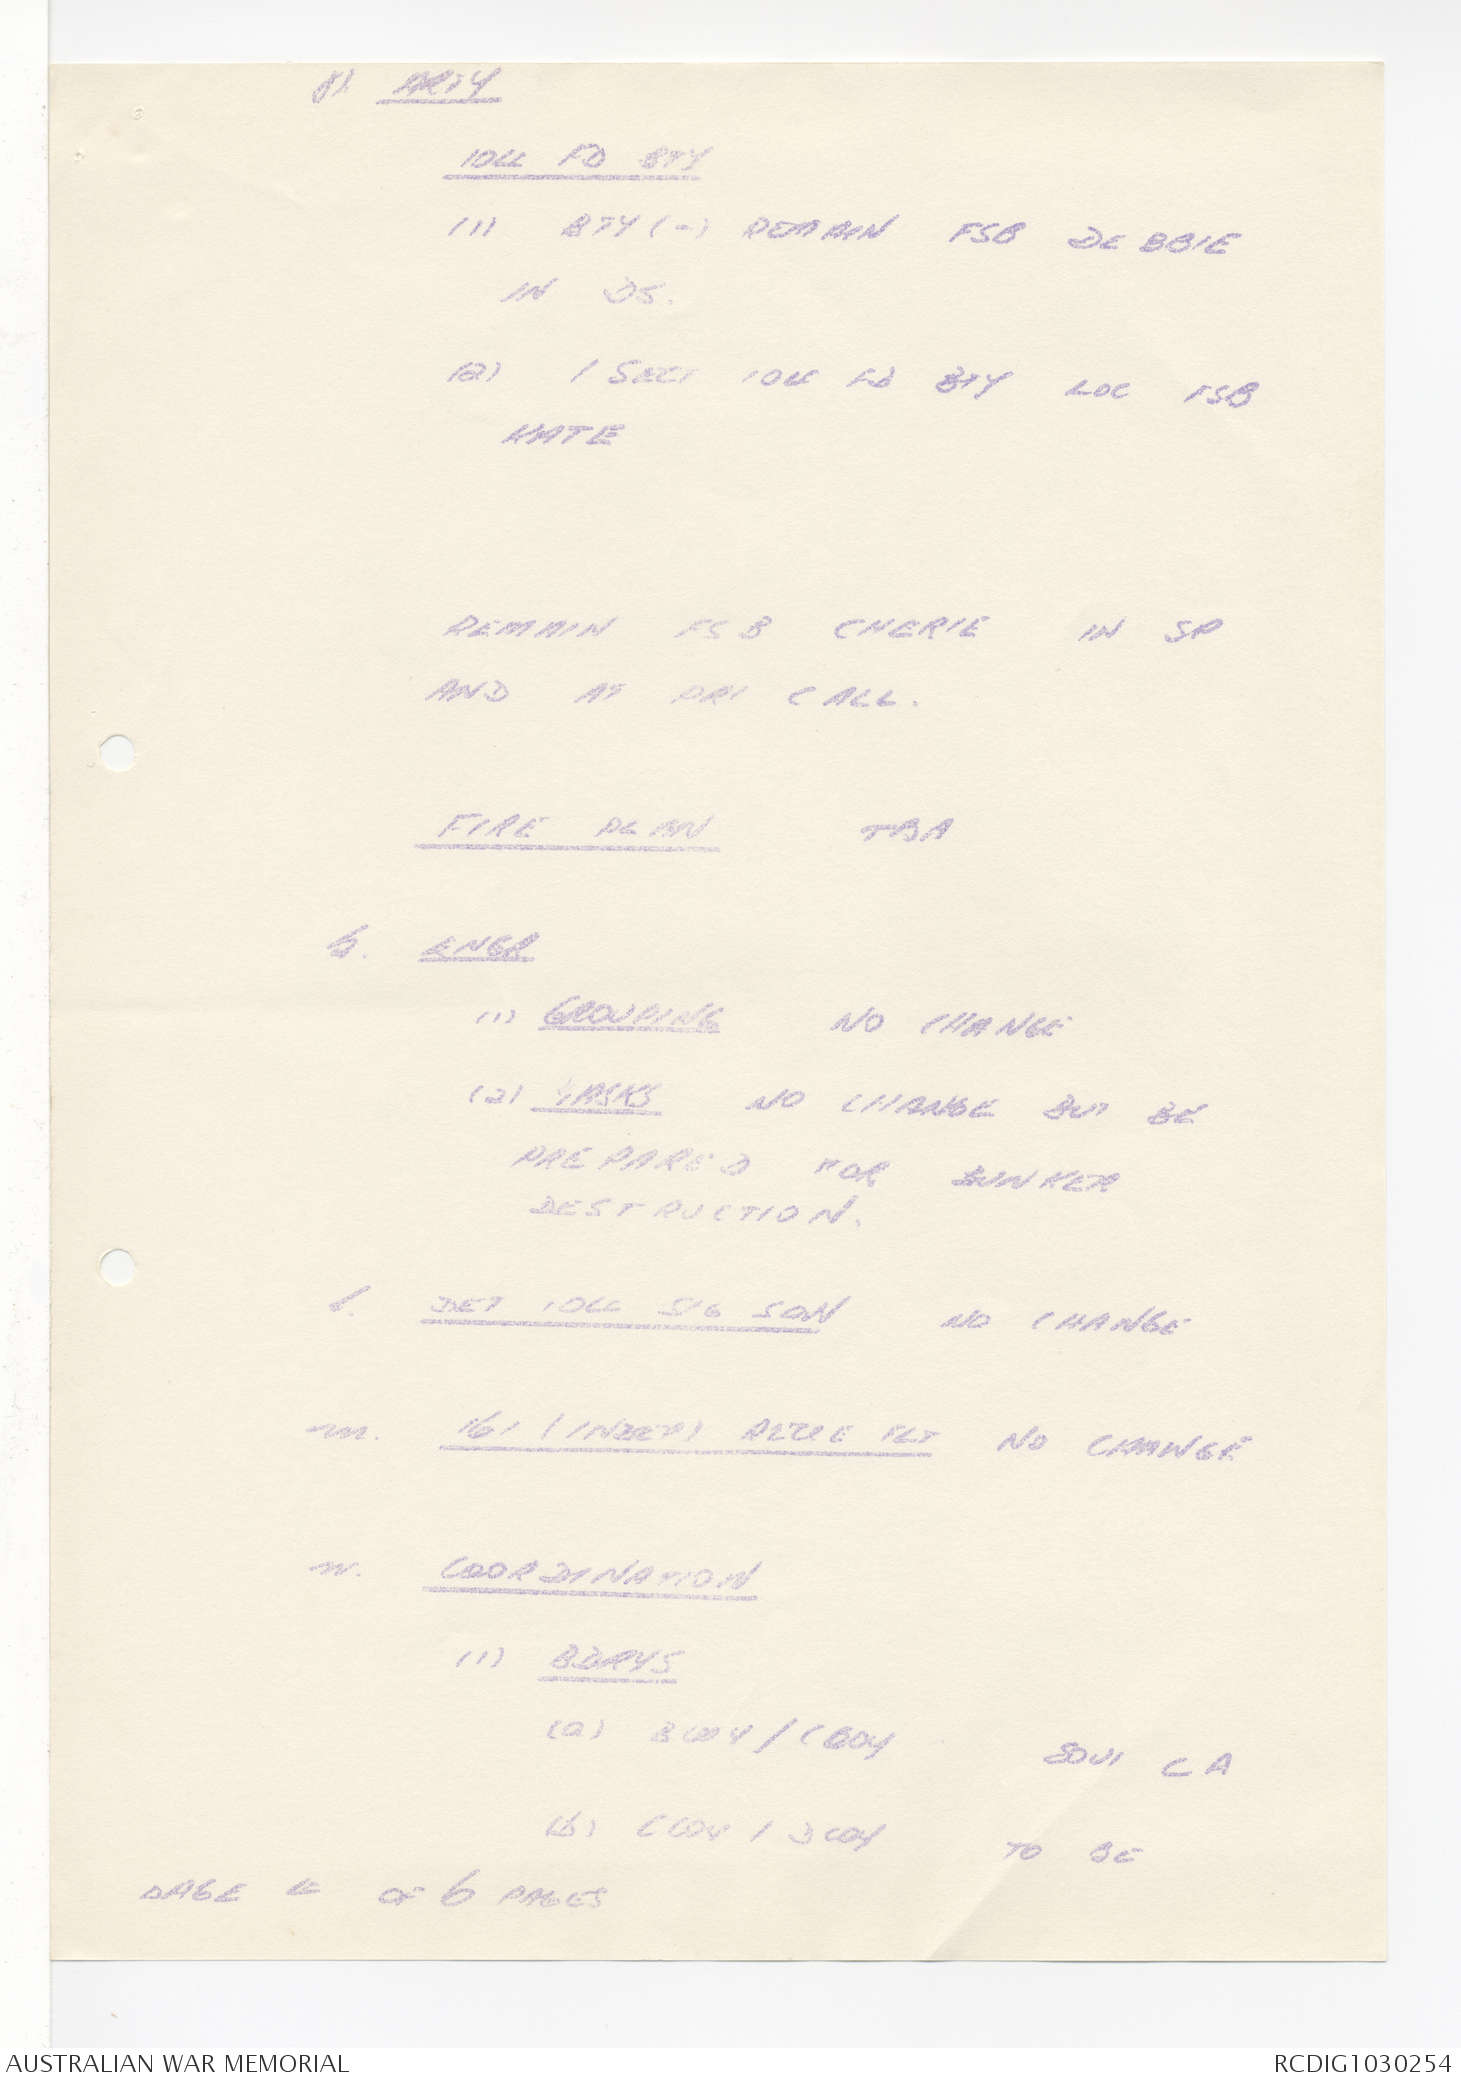 ARTY
104 FD BTY
(1) BTY (-) REMAIN FSB DEBBIE
IN DS.
(2) 1 SECT 104 FD BTY LOC FSB
KATE
REMAIN FSB CHERIE IN SP
AND AT PRI CALL.
FIRE PLAN TBA
k. ENGR
(1) GROUPING NO CHANGE
(2) TASKS NO CHANGE BUT BE
PREPARED FOR BUNKER
DESTRUCTION.
l. DET 104 SIG SQN NO CHANGE
m. 161 (INDEP) RECCE FLT NO CHANGE
n. COORDINATION
(1) BDRYS
(a) B COY / C COY
SQUI CA
(b) C COY / D COY
TO BE
PAGE 4 OF 6 PAGES
AUSTRALIAN WAR MEMORIAL
RCDIG1030254